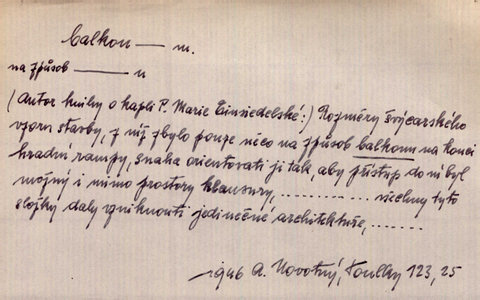 balkon — m.
na způsob — n
(Autor knihy o kapli P. Marie Einsiedelské:) Rozměry švýcarského
vzoru stavby, z níž zbylo pouze něco na způsob balkonu na konci
hradní rampy, snaha orientovati ji tak, aby přístup do ní byl
možný i mimo prostory klausury, ............ všechny tyto
složky daly vzniknouti jedinečné architektuře, ......
1946 A. Novotný, Toulky 123, 25